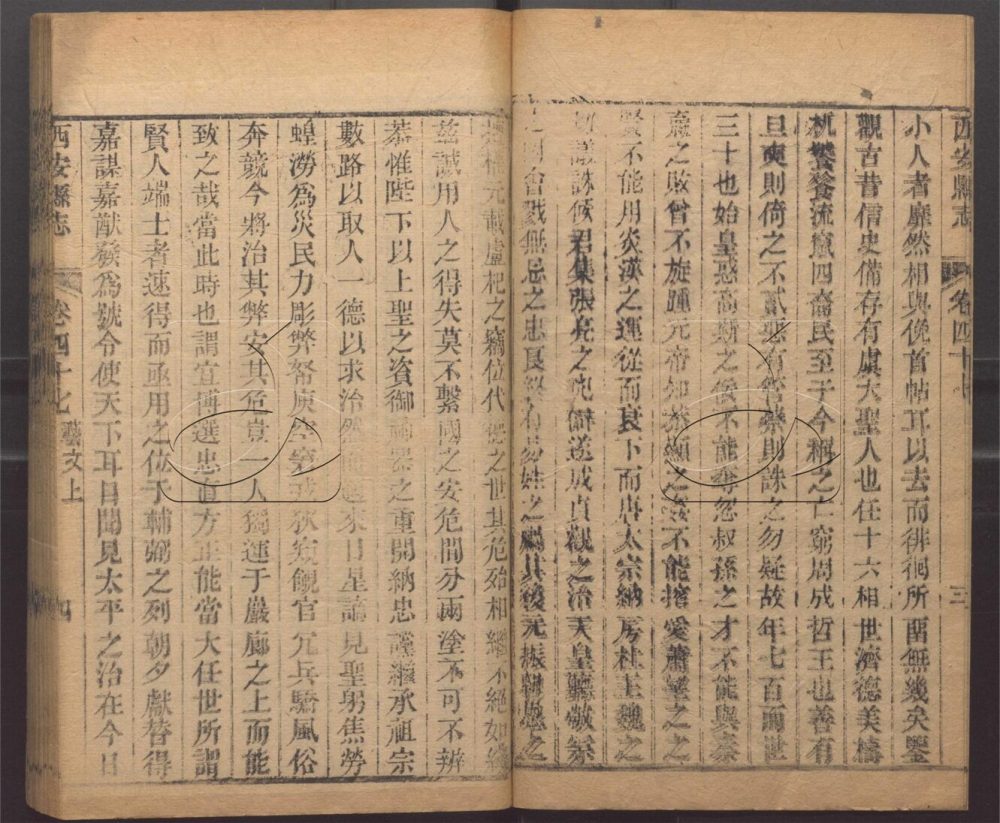 西安縣志 卷四十七 三
小人者靡然相與俛首帖耳以去而徘徊所留無幾矣鑒
觀古昔信史備存有虞大聖人也任十六相世濟德美檮
杌饕餮流竄四裔民至于今稱之亡窮周成哲王也善有
旦奭則倚之不貳惡有管蔡則誅之勿疑故年七百而世
三十也始皇惑高斯之佞不能尋忽叔孫之才不能與秦
蕭之敗曾不旋踵元帝知恭顯之姦不能捨愛蕭望之之
賢不能用炎漢之運從而衰下而唐太宗納房杜王魏之
儀誅侯君集張亮之 僻遂成貞觀之治天皇聽敬宗
之 會戮無忌之忠良 易姓之 其後元振朝恩之
元載盧杞之竊位代德之世其危殆相繼不絕如綫
茲誠用人之得失莫不繫國之安危間分兩塗不可不辨
恭惟陛下以上聖之資御 器之重開納忠讜纘承祖宗
數路以取人一德以求治然 來日星譎見聖躬焦勞
蝗澇為災民力彫弊帑庾空 狄窺覦官冗兵驕風俗
奔競今將治其弊安其危豈一人獨運于巖廊之上而能
致之哉當此時也謂宜博選忠直方正能當大任世所謂
賢人端士者速得而亟用之位于輔弼之列朝夕獻替得
嘉謀嘉猷發為號令使天下耳目聞見太平之治在今日
西安縣志 卷四十七 藝文上 四